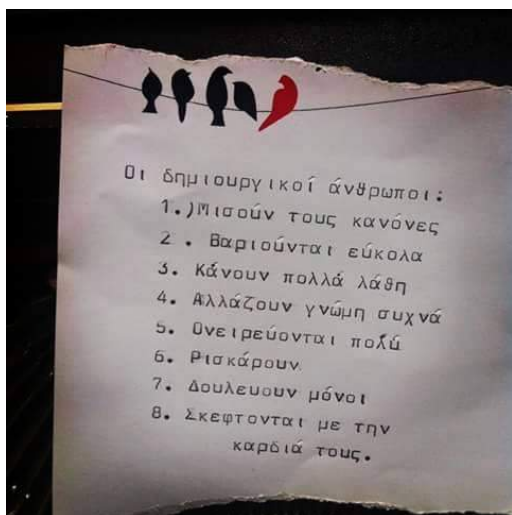 Οι δημιουργικοί άνθρωποι:
1.)Μισούν τους κανόνες
2 . Βαριούνται εύκολα
3. Κάνουν πολλά λάθη
4. Αλλάζουν γνώμη συχνά
5. Ονειρεύονται πολύ
6. Ρισκάρουν
7. Δουλευουν μόνοι
8. Σκεφτονται με την
καρδιά τους.